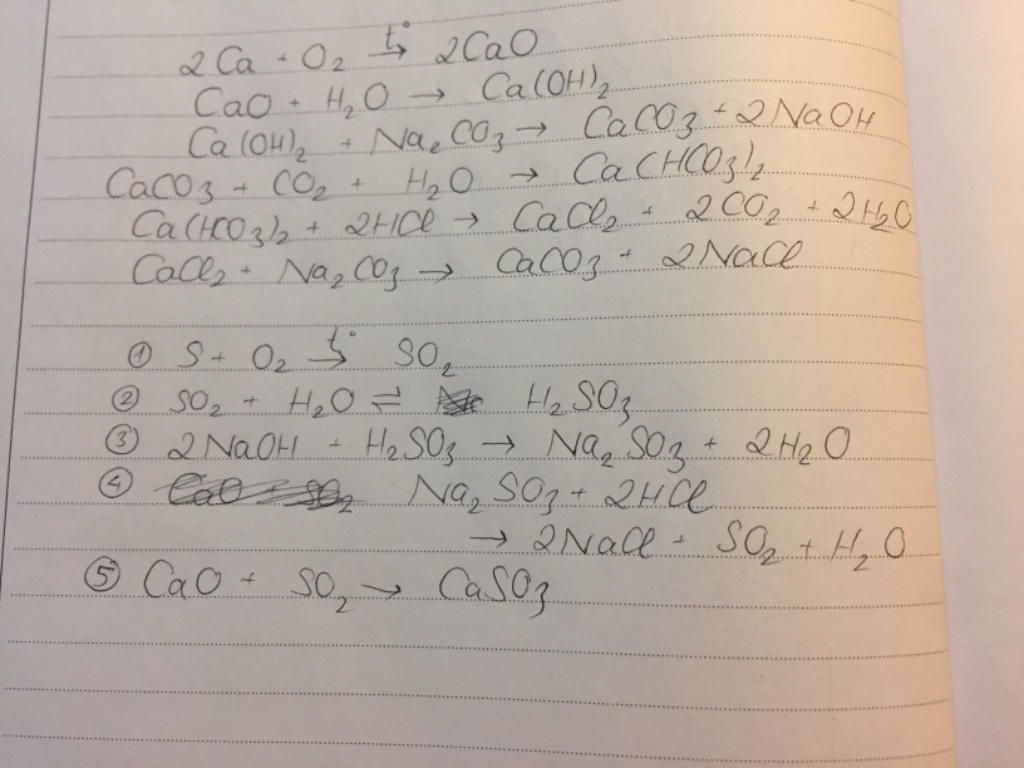 2Ca + O₂ →(t°) 2CaO
CaO + H₂O → Ca(OH)₂
Ca(OH)₂ + Na₂CO₃ → CaCO₃ + 2NaOH
CaCO₃ + CO₂ + H₂O → Ca(HCO₃)₂
Ca(HCO₃)₂ + 2HCl → CaCl₂ + 2CO₂ + 2H₂O
CaCl₂ + Na₂CO₃ → CaCO₃ + 2NaCl
① S + O₂ →(t°) SO₂
② SO₂ + H₂O ⇌ H₂SO₃
③ 2NaOH + H₂SO₃ → Na₂SO₃ + 2H₂O
④ CaO + SO₂ Na₂SO₃ + 2HCl
→ 2NaCl + SO₂ + H₂O
⑤ CaO + SO₂ → CaSO₃